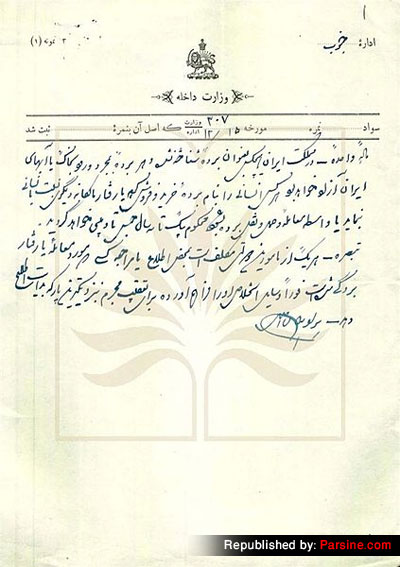 ۱
اداره: جنوب
۳ نمونه (۱)
وزارت داخله
سواد نمره مورخه ۱۵ / ۱۲ وزارت / اداره ۳۰۷ که اصل آن بنمره: ثبت شد
ماده واحده – در مملکت ایران هیچکس بعنوان برده شناخته نشده و هر برده بمجرد ورود بخاک یا آبهای
ایران آزاد خواهد بود هر کس انسانی را بنام برده خرید و فروش کرده یا رفتار مالکانه دیگری نسبت بانسانی
نماید یا واسطه معامله و حمل و نقل برده بشود محکوم بیک تا سه سال حبس تأدیبی خواهد گردید.
تبصره – هر یک از مامورین دولتی مکلف است بمحض اطلاع یا مراجعه کسی که مورد معامله یا رفتار
بردگی شده است فوراً وسایل استخلاص او را فراهم آورده برای تعقیب مجرم نیز به نزدیکترین پارکه بدایت اطلاع
دهد –
Republished by: Parsine.com